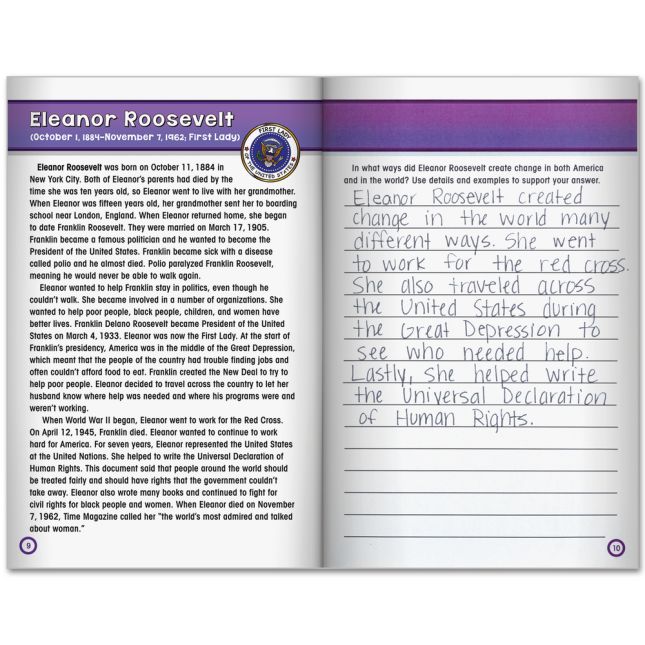 Eleanor Roosevelt
(October 1, 1884–November 7, 1962; First Lady)
FIRST LADY
OF THE UNITED STATES
Eleanor Roosevelt was born on October 11, 1884 in
New York City. Both of Eleanor's parents had died by the
time she was ten years old, so Eleanor went to live with her grandmother.
When Eleanor was fifteen years old, her grandmother sent her to boarding
school near London, England. When Eleanor returned home, she began
to date Franklin Roosevelt. They were married on March 17, 1905.
Franklin became a famous politician and he wanted to become the
President of the United States. Franklin became sick with a disease
called polio and he almost died. Polio paralyzed Franklin Roosevelt,
meaning he would never be able to walk again.
Eleanor wanted to help Franklin stay in politics, even though he
couldn't walk. She became involved in a number of organizations. She
wanted to help poor people, black people, children, and women have
better lives. Franklin Delano Roosevelt became President of the United
States on March 4, 1933. Eleanor was now the First Lady. At the start of
Franklin's presidency, America was in the middle of the Great Depression,
which meant that the people of the country had trouble finding jobs and
often couldn't afford food to eat. Franklin created the New Deal to try to
help poor people. Eleanor decided to travel across the country to let her
husband know where help was needed and where his programs were and
weren't working.
When World War II began, Eleanor went to work for the Red Cross.
On April 12, 1945, Franklin died. Eleanor wanted to continue to work
hard for America. For seven years, Eleanor represented the United States
at the United Nations. She helped to write the Universal Declaration of
Human Rights. This document said that people around the world should
be treated fairly and should have rights that the government couldn't
take away. Eleanor also wrote many books and continued to fight for
civil rights for black people and women. When Eleanor died on November
7, 1962, Time Magazine called her "the world's most admired and talked
about woman."
9
In what ways did Eleanor Roosevelt create change in both America
and in the world? Use details and examples to support your answer.
Eleanor Roosevelt created
change in the world many
different ways. She went
to work for the red cross.
She also traveled across
the United States during
the Great Depression to
see who needed help.
Lastly, she helped write
the Universal Declaration
of Human Rights.
10